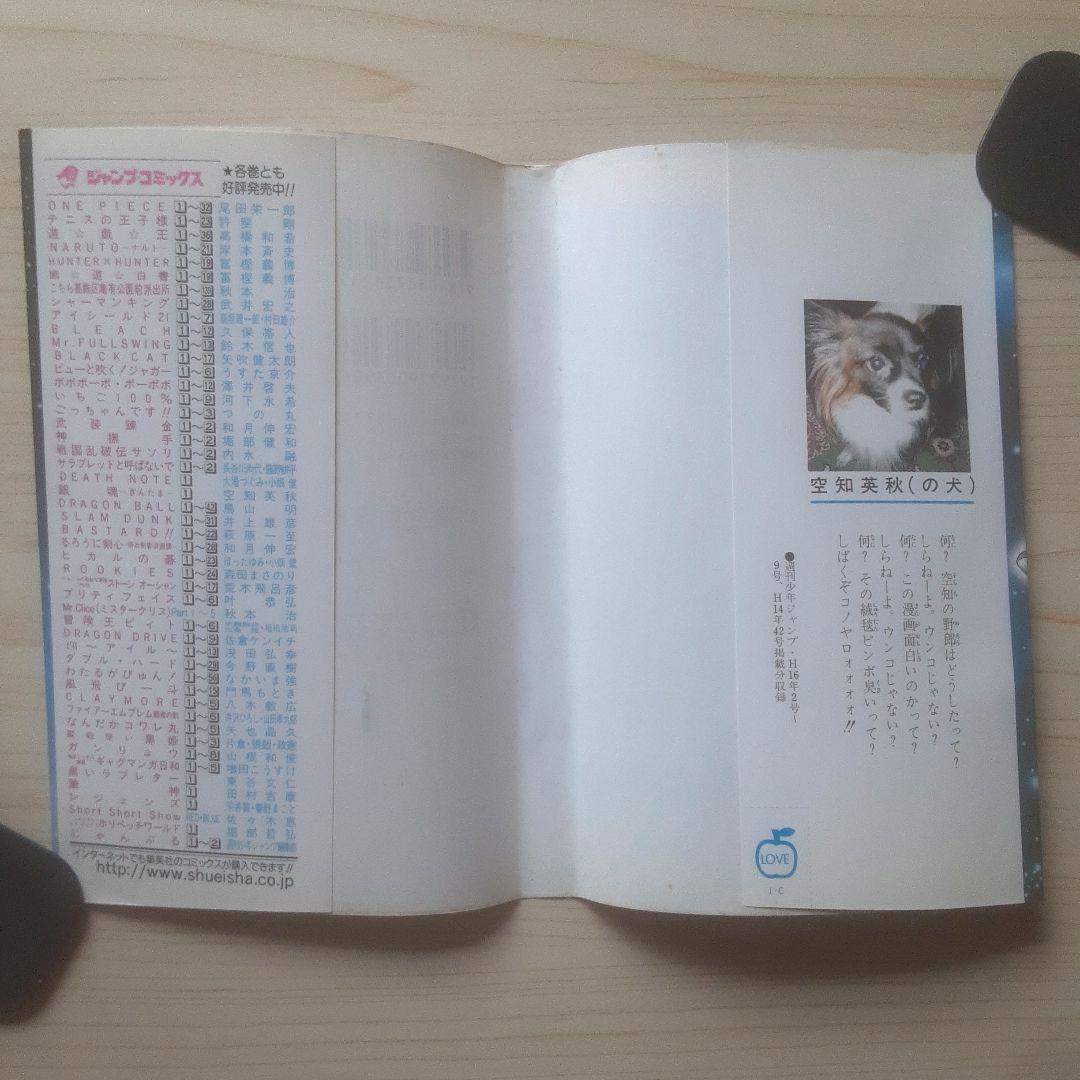 ジャンプコミックス
★各巻とも
好評発売中!!
ONE PIECE 1〜32 尾田栄一郎
テニスの王子様 1〜23 許斐 剛
遊☆戯☆王 1〜36 高橋和希
NARUTO―ナルト― 1〜21 岸本斉史
HUNTER×HUNTER 1〜19 冨樫義博
幽☆遊☆白書 1〜19 冨樫義博
こちら葛飾区亀有公園前派出所 秋本 治
シャーマンキング 武井宏之
アイシールド21 1〜7 稲垣理一郎・村田雄介
BLEACH 1〜12 久保帯人
Mr.FULLSWING 1〜13 鈴木信也
BLACK CAT 1〜17 矢吹健太朗
ピューと吹く!ジャガー 1〜6 うすた京介
ボボボーボ・ボーボボ 1〜12 澤井啓夫
いちご100% 1〜9 河下水希
ごっちゃんです!! 1〜3 つの丸
武装錬金 1〜2 和月伸宏
神撫手 1〜2 堀部健和
戦国乱破伝サソリ 1〜2 内水 融
サラブレッドと呼ばないで 1〜2
DEATH NOTE 1 大場つぐみ・小畑 健
銀魂―ぎんたま― 1 空知英秋
DRAGON BALL 1〜42 鳥山 明
SLAM DUNK 1〜31 井上雄彦
BASTARD!! 萩原一至
るろうに剣心 1〜28 和月伸宏
ヒカルの碁 1〜23 ほったゆみ・小畑 健
ROOKIES 1〜24 森田まさのり
ストーン オーシャン 1〜17 荒木飛呂彦
プリティフェイス 1〜6 叶 恭弘
Mr.Clice(ミスタークリス)Part1〜5 秋本 治
冒険王ビィト 1〜6
DRAGON DRIVE 1〜9 佐倉ケンイチ
I'll〜アイル〜 1〜13 浅田弘幸
ダブル・ハード 今野直樹
わたるがぴゅん! なかいま強
風飛び一斗 1〜15 門馬もとき
CLAYMORE 1〜5 八木教広
ファイアーエムブレム 1〜6
なんだかコワレ丸 1〜5 矢也晶久
黒姫 1〜3 片倉・狼組・政憲
ガンリュウ 1〜8 山根和俊
ギャグマンガ日和 1〜5 増田こうすけ
黒いラブレター 1 東谷文仁
筆神 1 田村吉康
レジェンズ 1
Short Short Show RED・BLUE 佐々木恵
ホリベッチワールド 1 堀部哲弘
じゃんぷる 1〜2
インターネットでも集英社のコミックスが購入できます!!
http://www.shueisha.co.jp
空知英秋(の犬)
何? 空知の野郎はどうしたって?
しらねーよ。ウンコじゃない?
何? この漫画面白いのかって?
しらねーよ。ウンコじゃない?
何? その絨毯ビンボ臭いって?
しばくぞコノヤロォォォ!!
●週刊少年ジャンプ・H16年2号〜
9号、H14年42号掲載分収録
LOVE
J・C